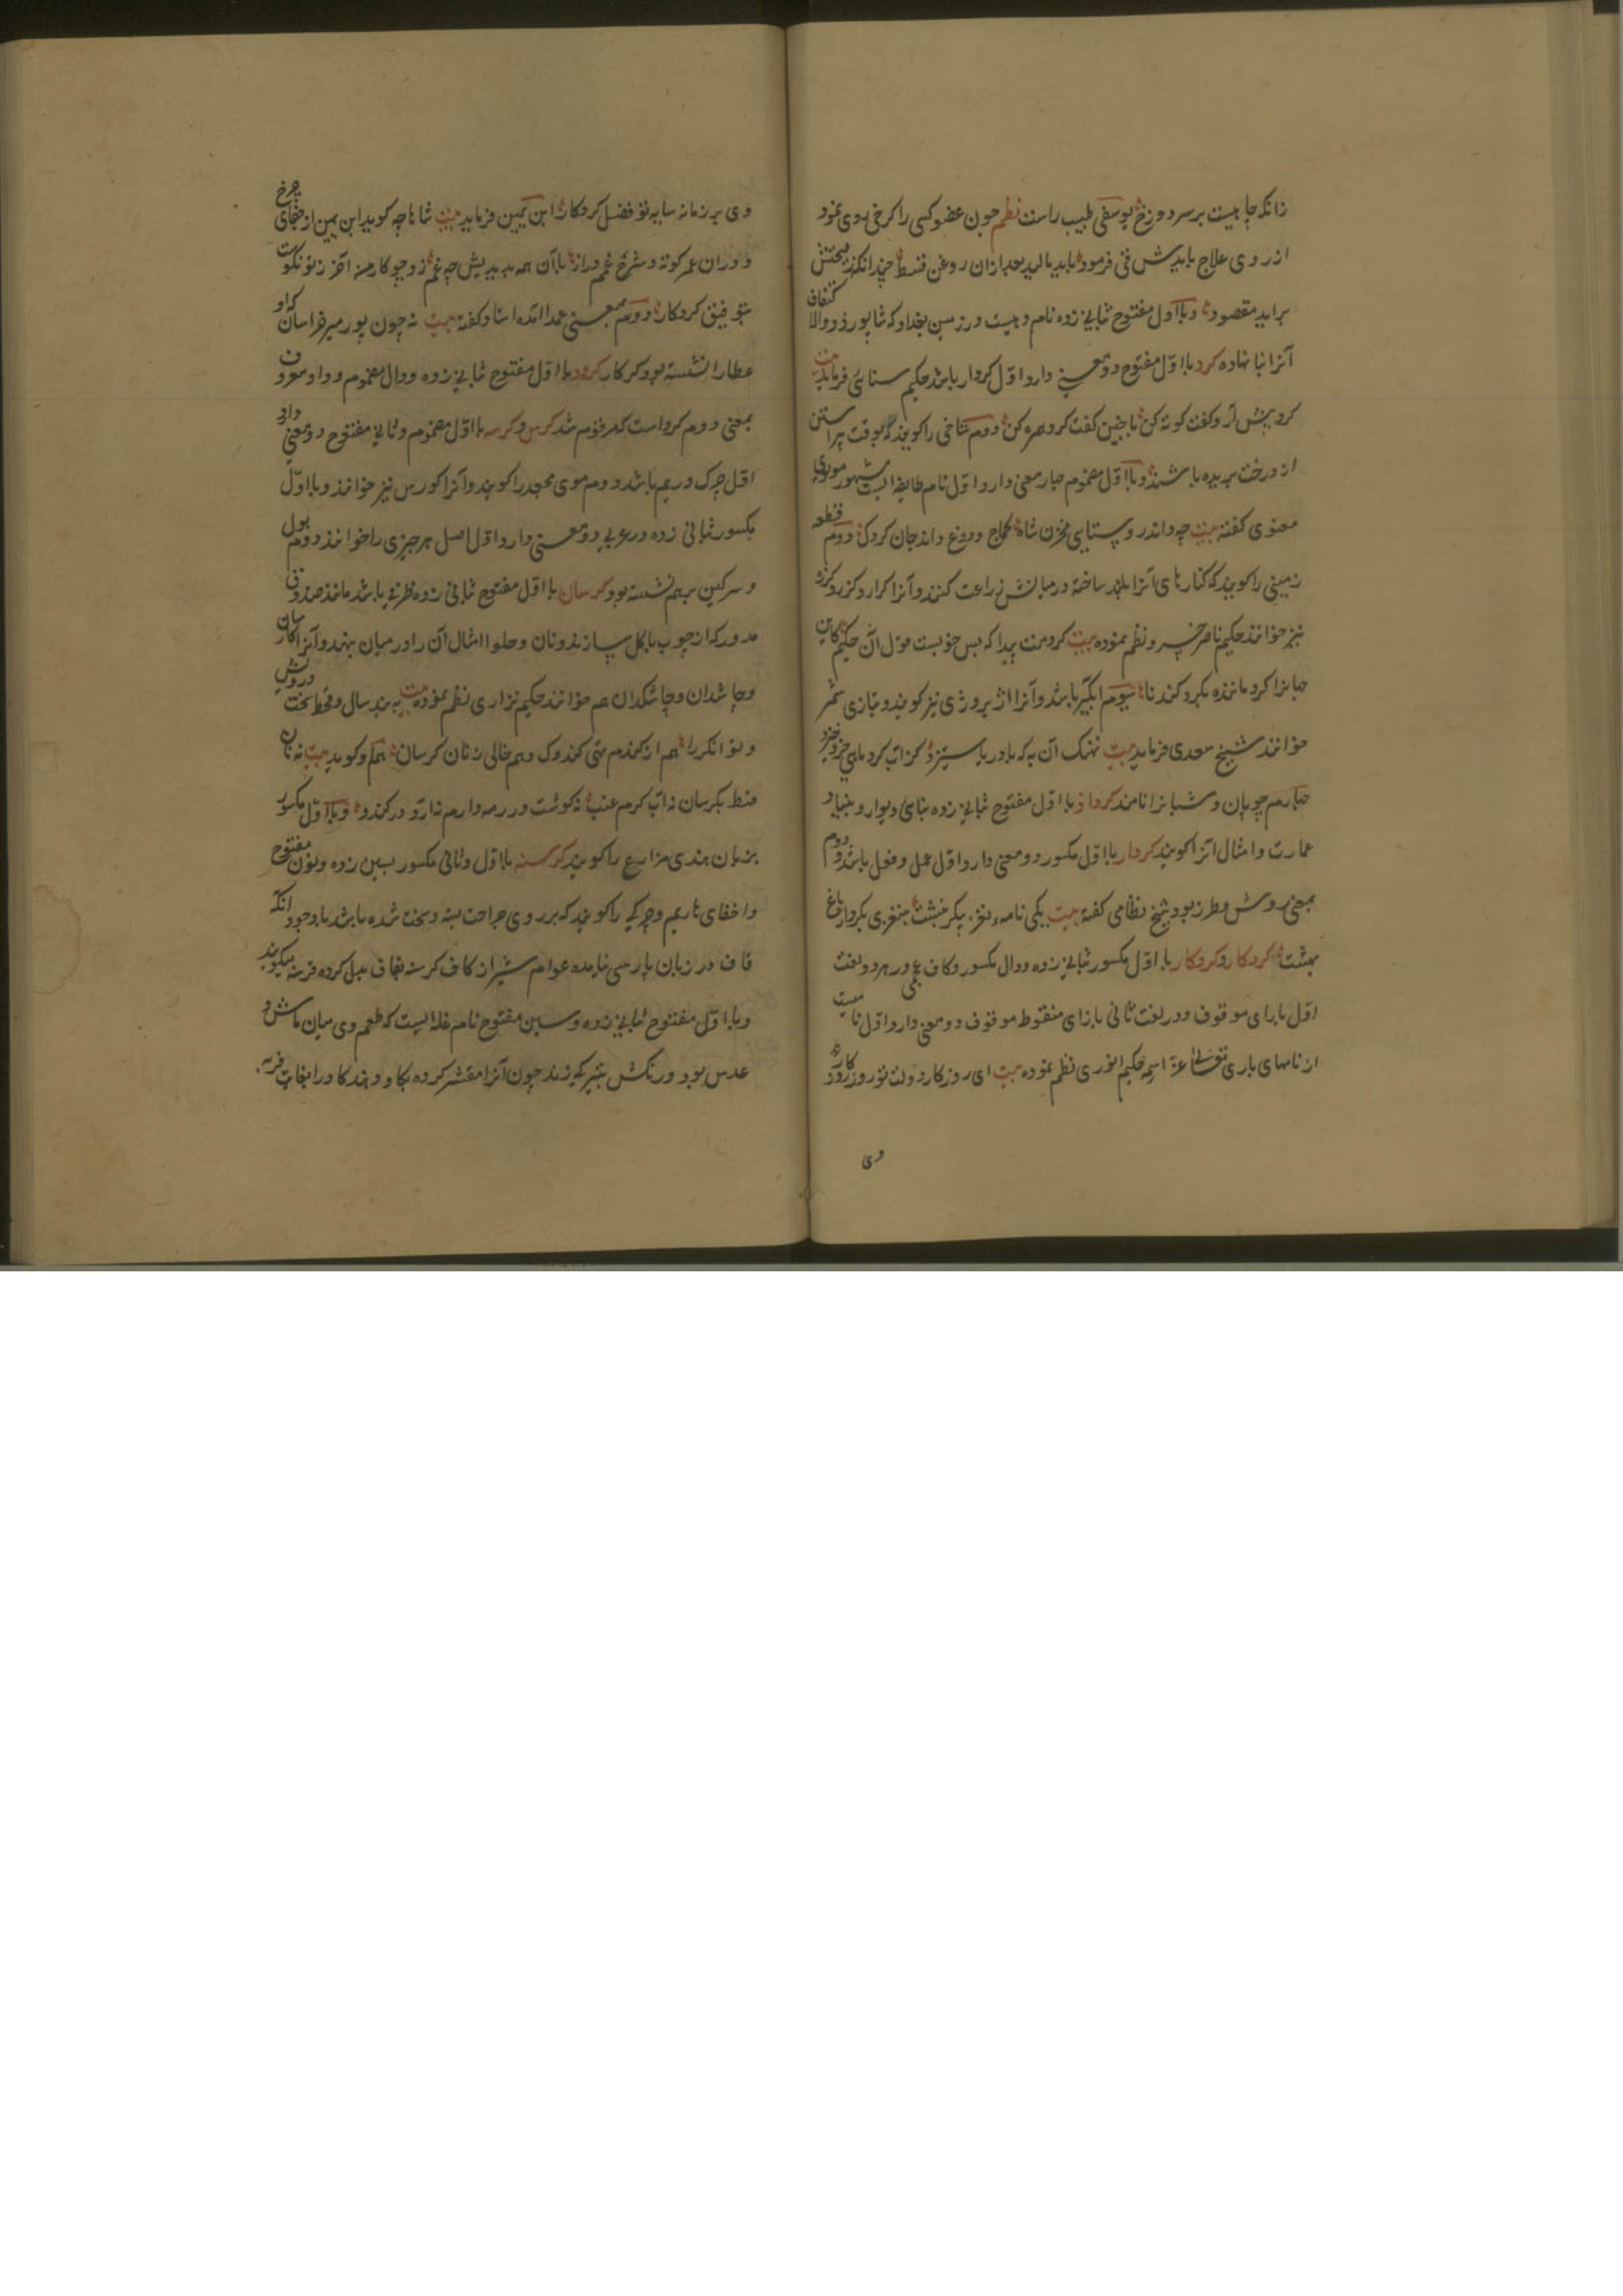 زانکه چاهیست بر سر دوزخ یوسفی طبیب راست نظم چون عضو کسی را کرخی روی نمود
از روی علاج بایدش قی فرمود باید مالید بعد ازان روغن قسط چندانکه
براید مقصود و با اول مفتوح بثانی زده نام دهیست در زمین بغداد که شاپور ذو الاکتاف
آنرا بنا نهاده کرد با اول مفتوح دو معنی دارد اول کردار باشد حکیم سنائی فرماید بیت
کرد پیش آر و گفت کوته کن با چنین گفت کرد همره کن دوم شاخی را گویند که بوقت پیراستن
از درخت بریده باشند و با اول مضموم چهار معنی دارد اول نام طایفه ایست مشهور مولوی
معنوی گفته بیت چه داند روستایی مخزن شاه کماج و دوغ داند جان کردک دوم قطعه
زمینی را گویند که کنارهای آنرا بلند ساخته در میانش زراعت کنند و آنرا کرار و کرز و کرزه
نیز خوانند حکیم ناصر خسرو نظم نموده بیت کردمت پیدا که بس خوبست قول آن حکیم کاین
جهانرا کرد مانند بکرد کندنا سوم آبگیر باشد و آنرا اژیر و ژی نیز گویند و بتازی شمر
خوانند شیخ سعدی فرماید بیت نهنگ آن به که با دریا ستیزد کز آب کرد ماهی خرد خیزد
چهارم چوپان و شبانرا نامند کرداذ با اول مفتوح بثانی زده بنای دیوار و بنیاد
عمارت و امثال آنرا گویند کردار با اول مکسور دو معنی دارد اول عمل و فعل باشد دوم
بمعنی روش و طرز بود شیخ نظامی گفته بیت یکی نامه نغز پیکر بنشت بنغزی بکردار باغ
بهشت کردکار و کردکار با اول مکسور بثانی زده و دال مکسور و کاف عجمی در هر دو لغت
اول با رای موقوف و در لغت ثانی با زای منقوط موقوف دو معنی دارد اول نامیست
از نامهای باری تعالی عز اسمه حکیم انوری نظم نموده بیت ای روزگار دولت تو روز روزگار
وی
وی بر زمانه سایه تو فضل کردکار ابن یمین فرماید بیت تا چه گوید ابن یمین از جفای چرخ
دوران عمر کوته و شرح غم دراز با آن همه بدیش چه غم زو چو کار من آخر ز تو نکوست
بتوفیق کردکار دوم بمعنی عمدا آمده استاد گفته بیت نه چون پور میر خراسان که او
عطارا نشسته بود کردکار کردو با اول مفتوح بثانی زده و دال مضموم و واو معروف
بمعنی دوم کرد است که مرقوم شد کرس و کرسه با اول مضموم و ثانی مفتوح دو معنی دارد
اول چرک و ریم باشد دوم موی مجعد را گویند و آنرا کورس نیز خوانند و با اول
مکسور بثانی زده در عربی دو معنی دارد اول اصل هر چیزی را خوانند دوم بول
و سرگین بر هم نشسته بود کرسان با اول مفتوح بثانی زده ظرفی باشد مانند صندوق
مدور که از چوب یا گل سازند و نان و حلوا و امثال آن را در میان نهند و آنرا
و چاشدان و چاشکدان هم خوانند حکیم نزاری نظم نموده بیت سال و قحط سخت درویش
و توانگر را هم از گندم تهی کندوک و هم خالی ز نان کرسان هم و گوید بیت نه نان
فقط بکرسان نه آب کرم عنب نه گوشت در رمه دارم نه آرد در کندو و با اول مکسور
بزبان هندی مزارع را گویند کرسنه با اول و ثانی مکسور بسین زده و نون مفتوح
و اخفای ها ریم و چرکی را گویند که بر روی جراحت بسته و سخت شده باشد با وجود آنکه
قاف در زبان پارسی نیامده عوام شیراز کاف کرسنه بقاف بدل کرده قرسنه میگویند
و با اول مفتوح بثانی زده و سین مفتوح نام غله ایست که طعم وی میان ماش و
عدس بود و رنگش بتیرگی زند چون آنرا مقشر کرده بگاو دهند گاو را بغایت فربه